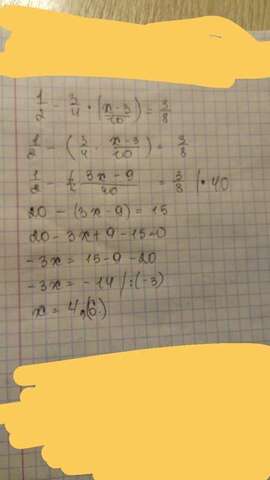 1/2 - 3/4 • (x-3/10) = 3/8
1/2 - (3/4 · x-3/10) = 3/8
1/2 - 3x-9/40 = 3/8 |• 40
20 - (3x-9) = 15
20-3x+9-15=0
-3x = 15-9-20
-3x = -14 /:(-3)
x = 4,(6)